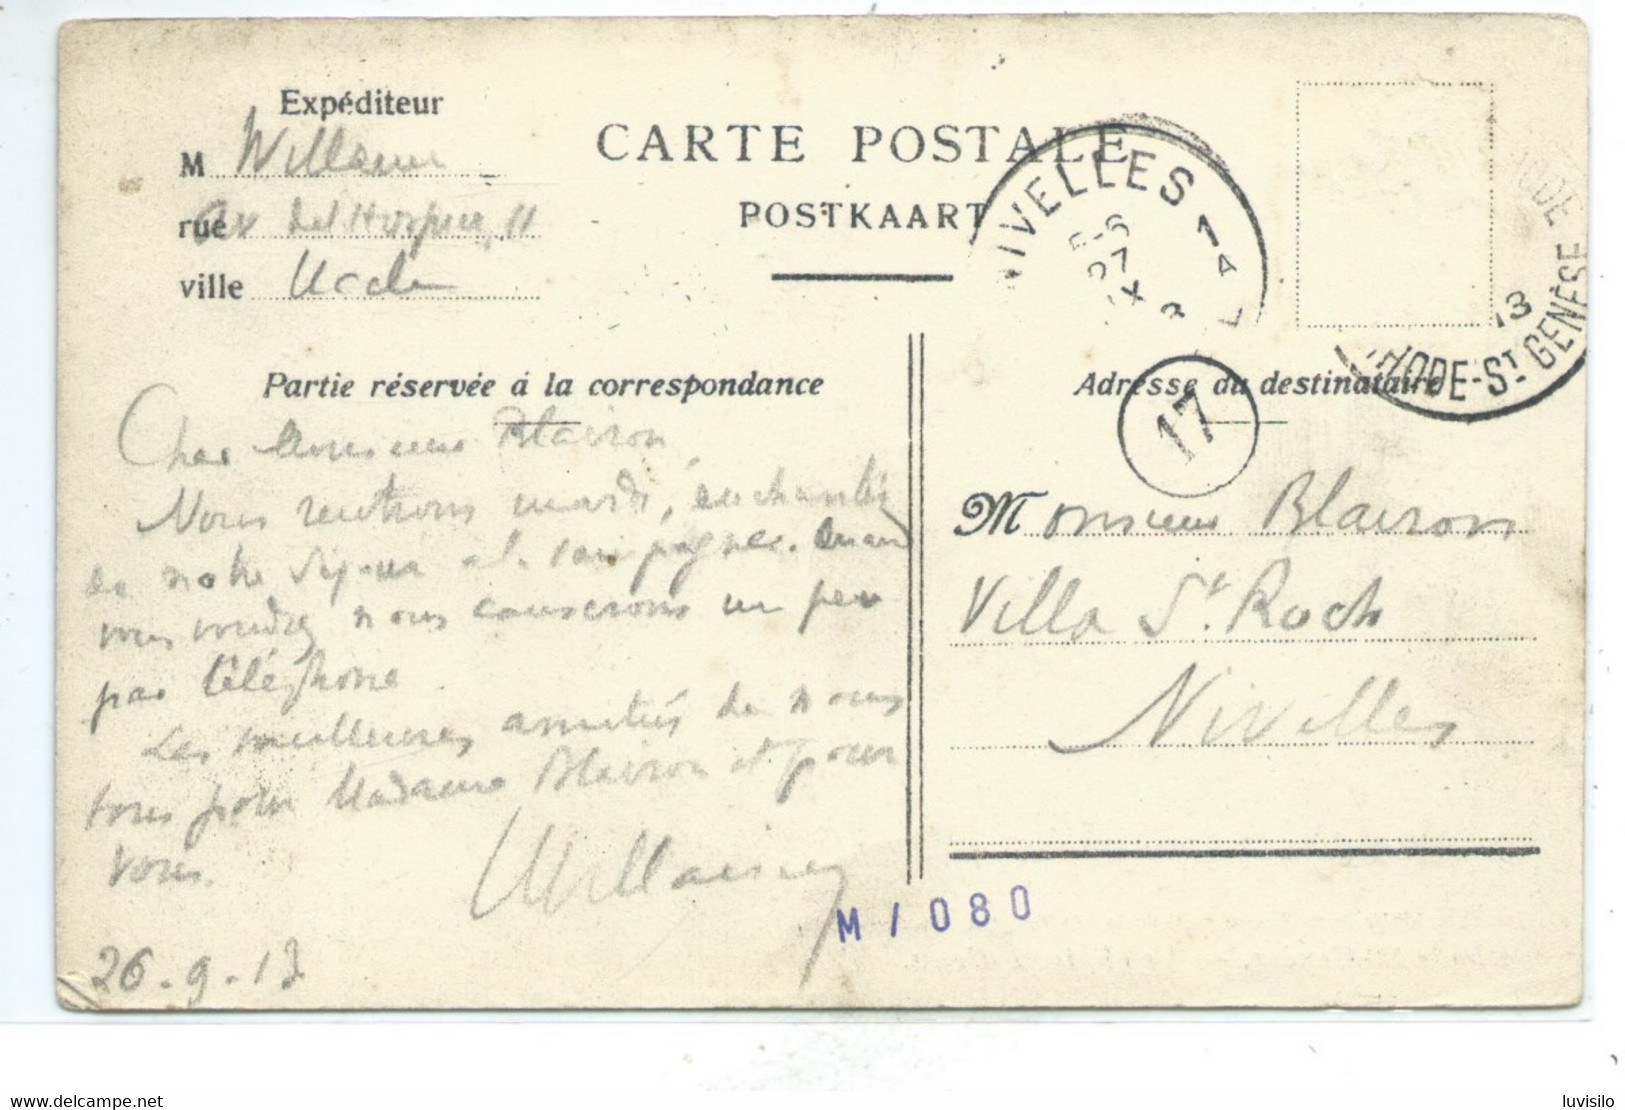 Expéditeur
M Willame
rue Av de l'Hospice, 11
ville Uccle
CARTE POSTALE
POSTKAART
NIVELLES 1A
5-6
27
X
RHODE-ST GENÈSE
13
Partie réservée à la correspondance
Adresse du destinataire
17
Cher Monsieur Blairon,
Nous rentrons mardi, enchantés
de notre séjour à la campagne. Quand
vous voudrez nous causerons un peu
par téléphone.
Les meilleures amitiés de nous
tous pour Madame Blairon et pour
vous.
Willame
26-9-13
Monsieur Blairon
Villa St. Roch
Nivelles
M/080
www.delcampe.net
luvisilo